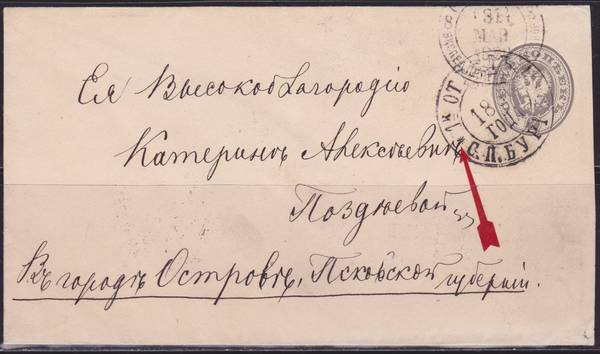 Ея Высокоблагородію
Катеринѣ Алексѣевнѣ
Поздѣевой
Въ городъ Островъ, Псковской губерніи.
31
МАР
18
С.П.БУРГ